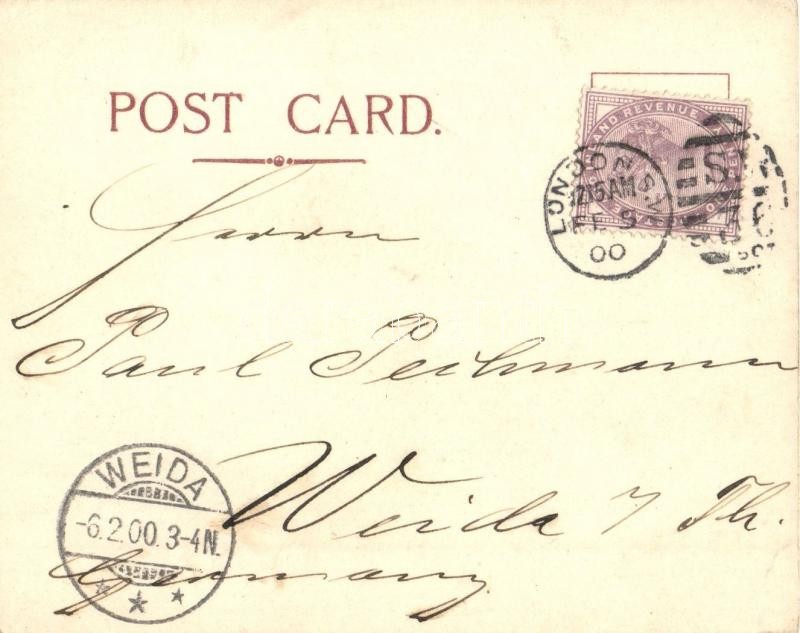 POST CARD.
INLAND REVENUE
LONDON
12.15AM
FE 5
00
S
Herrn
Paul Pechmann
Weida / Th.
Germany
WEIDA
-6.2.00.3-4N.